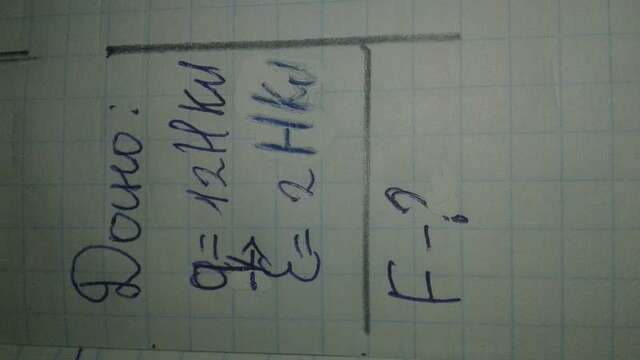 Дано:
q = 12 НКл
ε = 2 НКл
F - ?